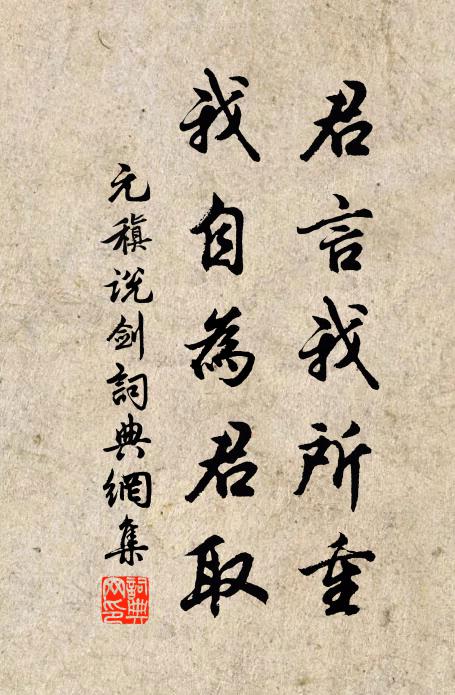 君言我所重
我自為君取
元稹说剑詞典網集
詞典网印